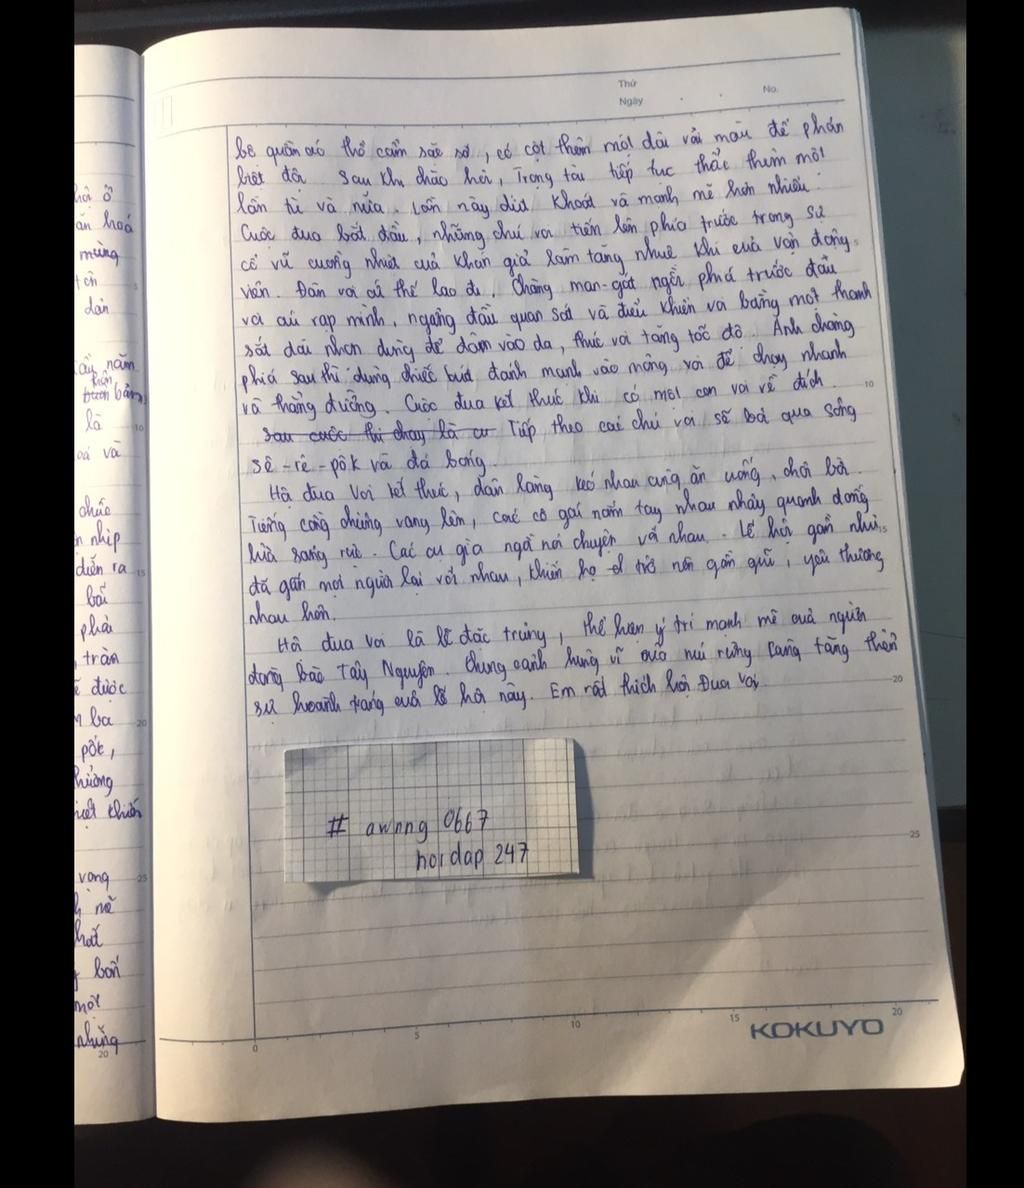 Thứ
Ngày
No.
bộ quần áo thổ cẩm sặc sỡ, có cột thêm một dải vải màu để phân
biệt đội. Sau khi chào hỏi, Trọng tài tiếp tục thắc thìm một
lần từ và nữa. Lần này dứt khoát và mạnh mẽ hơn nhiều.
Cuộc đua bắt đầu, những chú voi tiến lên phía trước trong sự
cổ vũ cuồng nhiệt của khán giả làm tăng nhuệ khí của vận động
viên. Đàn voi cứ thế lao đi. Chàng man-gát ngồi phía trước đầu
voi cúi rạp mình, ngẩng đầu quan sát và điều khiển voi bằng một thanh
sắt dài nhọn dùng để đâm vào da, thúc voi tăng tốc độ. Anh chàng
phía sau thì dùng chiếc búa đánh mạnh vào mông voi để chạy nhanh
và thẳng đường. Cuộc đua kết thúc khi có một con voi về đích.
sau cuộc thi chạy là cu Tiếp theo các chú voi sẽ bơi qua sông
Sê-rê-pôk và đá bóng.
Hội đua voi kết thúc, dân làng kéo nhau cùng ăn uống, chơi bời.
Tiếng cồng chiêng vang lên, các cô gái nắm tay nhau nhảy quanh đống
lửa sáng rực. Các cụ già ngồi nói chuyện với nhau. Lễ hội gần như
đã gắn mọi người lại với nhau, khiến họ trở nên gần gũi, yêu thương
nhau hơn.
Hội đua voi là lễ đặc trưng, thể hiện ý trí mạnh mẽ của người
đồng bào Tây Nguyên. Khung cảnh hùng vĩ của núi rừng càng tăng thêm
sự hoành tráng của lễ hội này. Em rất thích hội Đua voi.
# awnng 0667
hoidap 247
KOKUYO
hội ở
ăn hoá
mừng
dân
năm
là
và
chức
nhịp
diễn ra
bãi
phải
tràn
được
ba
pôk,
hưởng
khiến
vang
mẽ
bốn
một
những
0
5
10
15
20
10
15
20
25